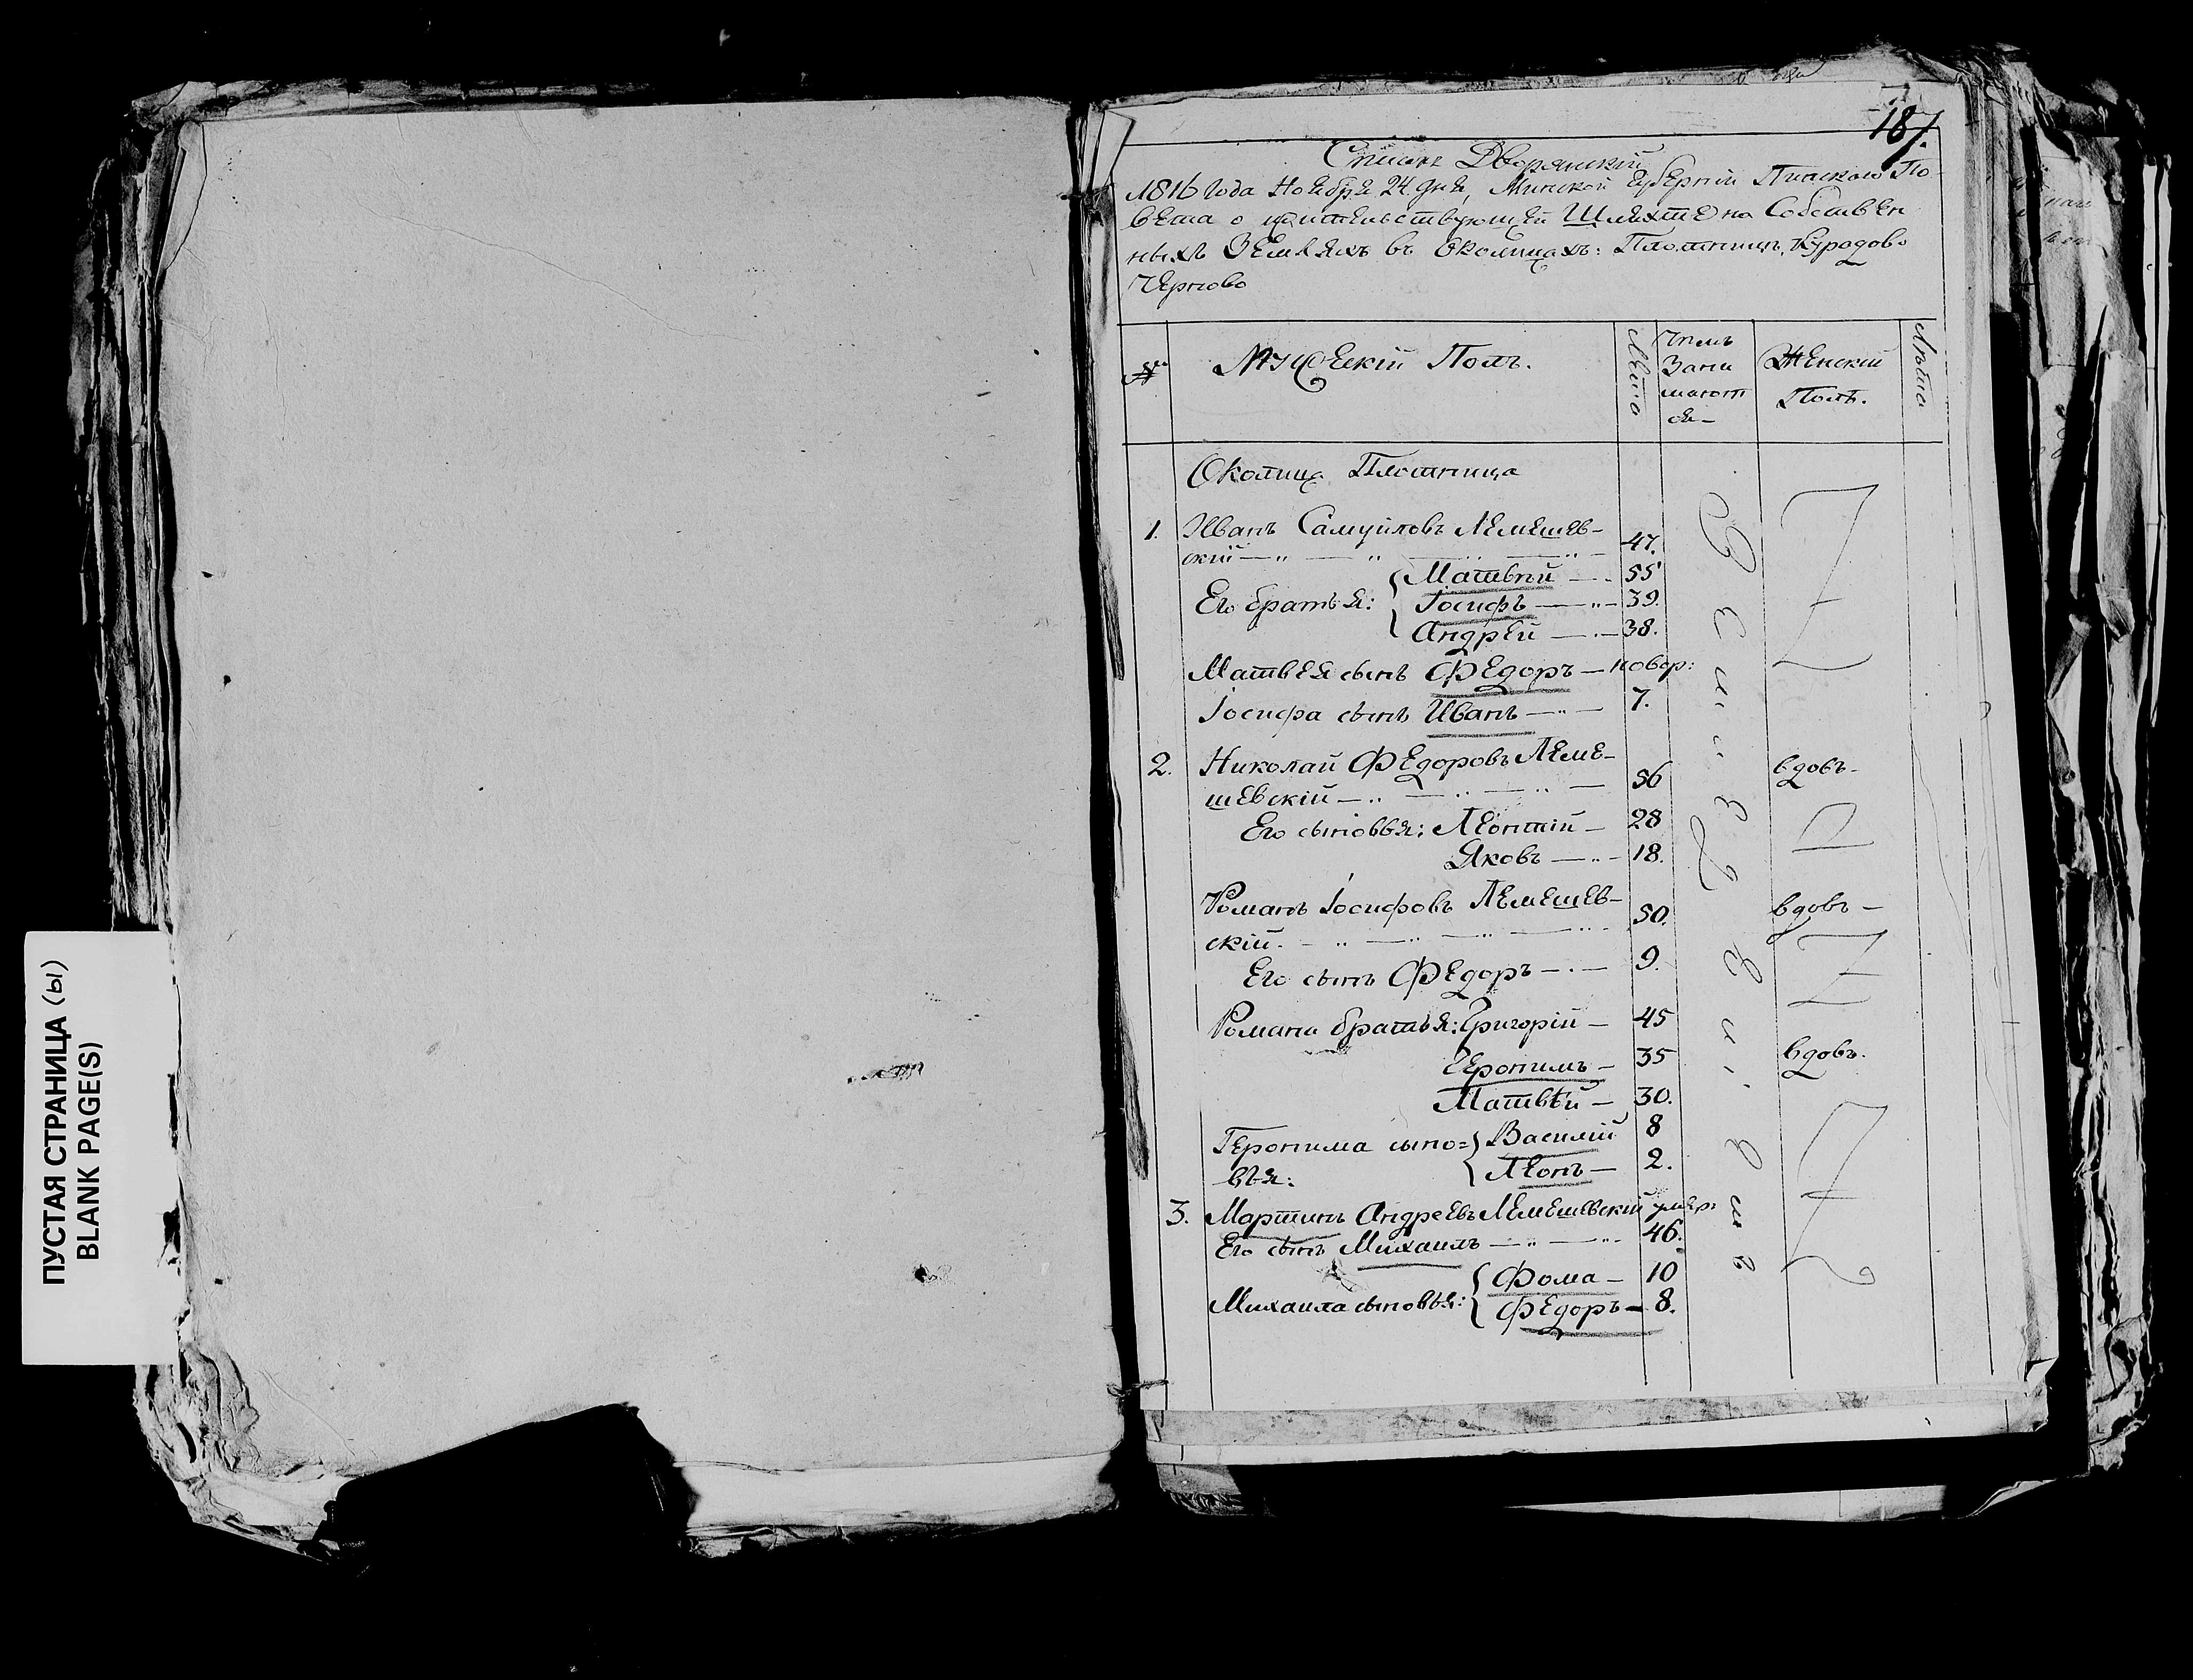 ПУСТАЯ СТРАНИЦА (Ы)
BLANK PAGE(S)
187.
Списокъ Дворянский
1816 года Ноября 24 дня, Минской Губернии Пинского По-
вета о жительствующей Шляхте на Собствен
ныхъ Земляхъ въ Околицахъ: Плотницъ, Куродово
Черново
№ Мужеский Полъ. Лета Чемъ Зани мают ся- Женский Полъ. Лета
Околица Плотница
1. Иванъ Самуйловъ Лемешев-
скій 47.
Его братья: Матвѣй 55
Іосифъ 39.
Андрей 38.
Матвея сынъ Федоръ - новор:
Іосифа сынъ Иванъ 7.
2. Николай Федоровъ Леме-
шевскій 56 вдовъ-
Его сыновья: Леонтій 28
Яковъ 18.
Романъ Іосифовъ Лемешев-
скій. 50. вдовъ-
Его сынъ Федоръ 9.
Романа братья: Григорій 45
Геронимъ 35 вдовъ.
Матвѣй 30.
Геронима сыно= Василій 8
вья: Леонъ 2.
3. Мартинъ Андреевъ Лемешевскій умеръ
Его сынъ Михаилъ 46.
Михаила сыновья: Фома 10
Федоръ 8.